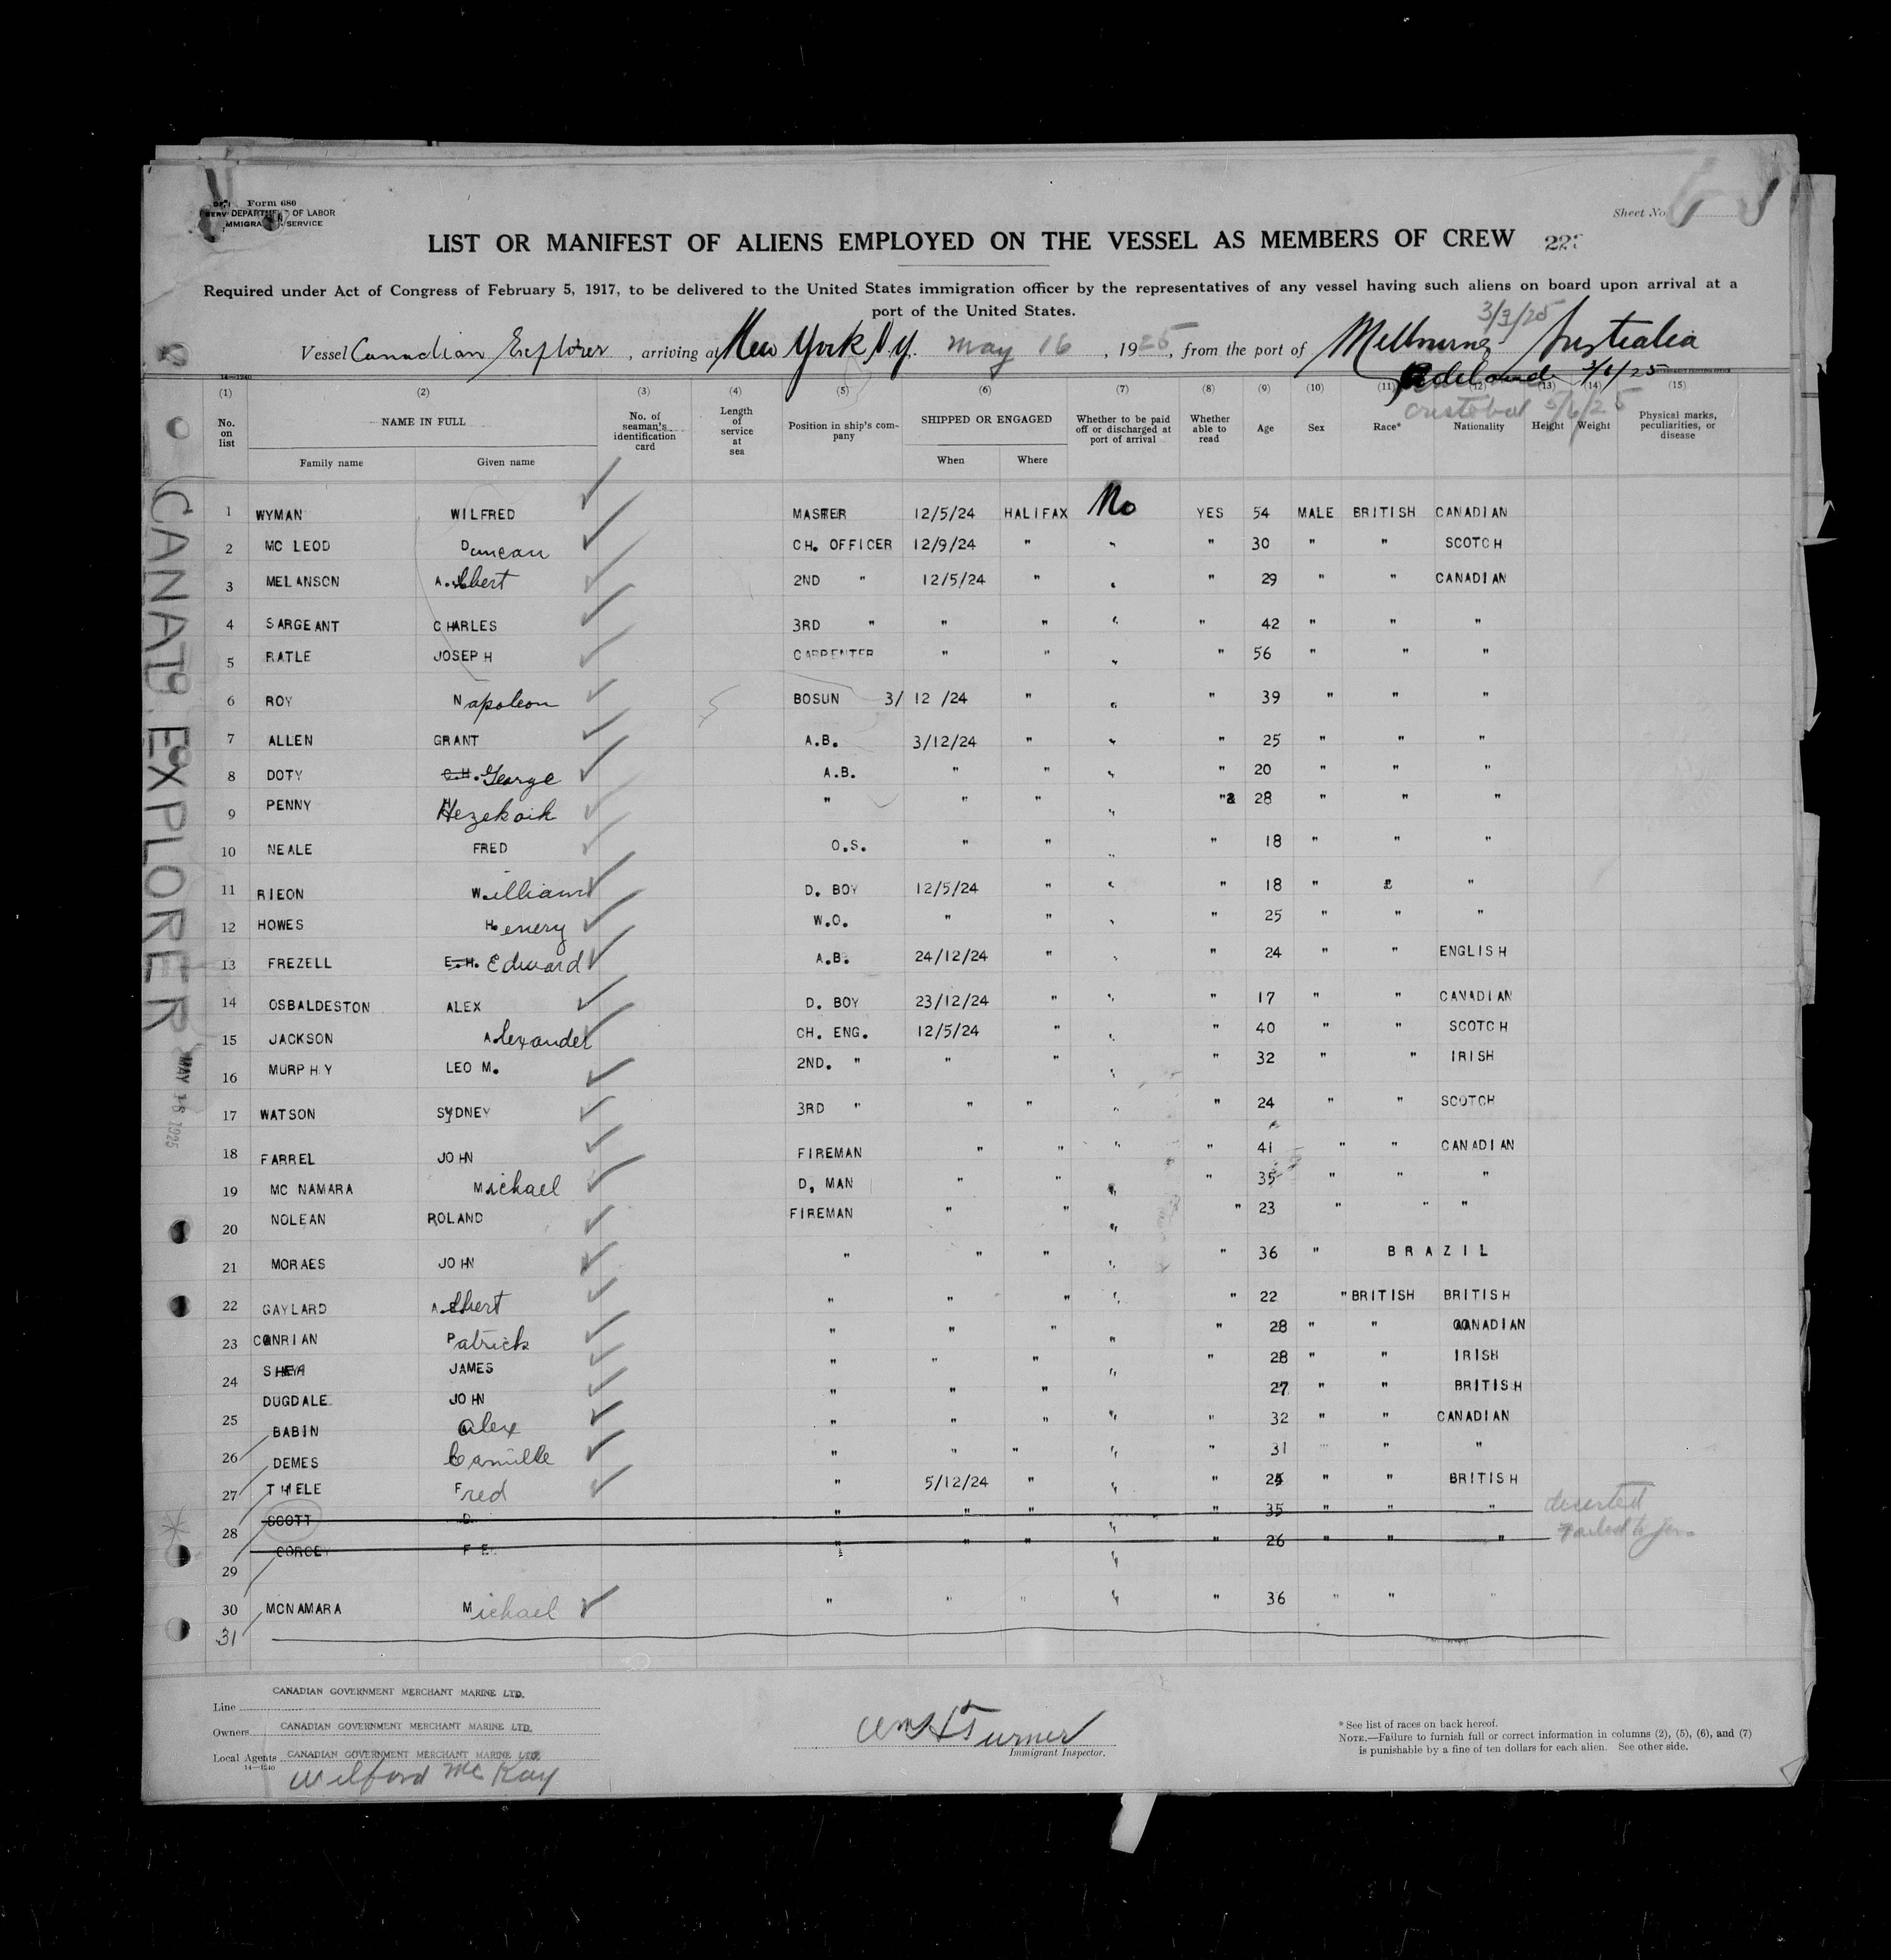 Form 680
DEPARTMENT OF LABOR
IMMIGRATION SERVICE
Sheet No.
LIST OR MANIFEST OF ALIENS EMPLOYED ON THE VESSEL AS MEMBERS OF CREW
Required under Act of Congress of February 5, 1917, to be delivered to the United States immigration officer by the representatives of any vessel having such aliens on board upon arrival at a
port of the United States.
3/3/25
Vessel Canadian Explorer, arriving at New York N.Y. May 16, 1925, from the port of Melbourne Australia
Adelaide 3/6/25
Cristobal 5/6/25
(1) (2) (3) (4) (5) (6) (7) (8) (9) (10) (11) (12) (13) (14) (15)
No. on list NAME IN FULL Family name Given name No. of seaman's identification card Length of service at sea Position in ship's company SHIPPED OR ENGAGED When Where Whether to be paid off or discharged at port of arrival Whether able to read Age Sex Race* Nationality Height Weight Physical marks, peculiarities, or disease
1 WYMAN WILFRED MASTER 12/5/24 HALIFAX No YES 54 MALE BRITISH CANADIAN
2 MC LEOD Duncan CH. OFFICER 12/9/24 " " " 30 " " SCOTCH
3 MELANSON Albert 2ND " 12/5/24 " " " 29 " " CANADIAN
4 SARGEANT CHARLES 3RD " " " " " 42 " " "
5 RATLE JOSEPH CARPENTER " " " " 56 " " "
6 ROY Napoleon BOSUN 3/ 12 /24 " " " 39 " " "
7 ALLEN GRANT A.B. 3/12/24 " " " 25 " " "
8 DOTY C.H. George A.B. " " " " 20 " " "
9 PENNY Hezekaih " " " " " 28 " " "
10 NEALE FRED O.S. " " " " 18 " " "
11 RIEON William D. BOY 12/5/24 " " " 18 " " "
12 HOWES Henery W.O. " " " " 25 " " "
13 FREZELL E.H. Edward A.B. 24/12/24 " " " 24 " " ENGLISH
14 OSBALDESTON ALEX D. BOY 23/12/24 " " " 17 " " CANADIAN
15 JACKSON Alexander CH. ENG. 12/5/24 " " " 40 " " SCOTCH
16 MURPHY LEO M. 2ND. " " " " " 32 " " IRISH
17 WATSON SYDNEY 3RD " " " " " 24 " " SCOTCH
18 FARREL JOHN FIREMAN " " " " 41 " " CANADIAN
19 MC NAMARA Michael D, MAN " " " " 35 " " "
20 NOLEAN ROLAND FIREMAN " " " " 23 " " "
21 MORAES JOHN " " " " " 36 " BRAZIL
22 GAYLARD Albert " " " " " 22 " BRITISH BRITISH
23 CONRIAN Patrick " " " " " 28 " " CANADIAN
24 SHEA JAMES " " " " " 28 " " IRISH
DUGDALE JOHN " " " 27 " " BRITISH
25 BABIN Alex " " " " " 32 " " CANADIAN
26 DEMES Camille " " " " " 31 " " "
27 THELE Fred " 5/12/24 " " " 25 " " BRITISH
28 SCOTT D. " " " " " 35 " " " deserted
29 CORCEY F E. " " " " " 26 " " " Failed to join
30 MCNAMARA Michael " " " " " 36 " " "
31
CANADIAN EXPLORER
MAY 18 1925
Line CANADIAN GOVERNMENT MERCHANT MARINE LTD.
Owners CANADIAN GOVERNMENT MERCHANT MARINE LTD.
Local Agents CANADIAN GOVERNMENT MERCHANT MARINE LTD.
14—1240
Wilford McKay
Wm H Turner
Immigrant Inspector.
* See list of races on back hereof.
NOTE.—Failure to furnish full or correct information in columns (2), (5), (6), and (7)
is punishable by a fine of ten dollars for each alien. See other side.